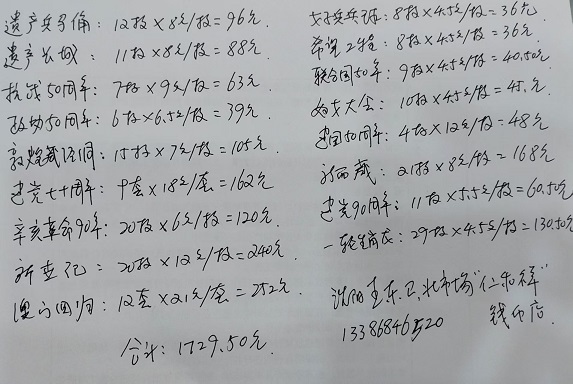 遗产兵马俑: 12枚×8元/枚=96元
遗产长城: 11枚×8元/枚=88元
抗战50周年: 7枚×9元/枚=63元
政协50周年: 6枚×6.5元/枚=39元
敦煌藏经洞: 15枚×7元/枚=105元
建党七十周年: 9套×18元/套=162元
辛亥革命90年: 20枚×6元/枚=120元
新世纪: 20枚×12元/枚=240元
澳门回归: 12套×21元/套=252元
合计: 1729.50元
8枚×4.5元/枚=36元
希望工程: 8枚×4.5元/枚=36元
联合国50年: 9枚×4.5元/枚=40.50元
妇女大会: 10枚×4.5元/枚=45元
建国50周年: 4枚×12元/枚=48元
西藏: 21枚×8元/枚=168元
建党90周年: 11枚×5.5元/枚=60.50元
一轮生肖: 29枚×4.5元/枚=130.50元
沈阳 北市场"仁和祥"
13386846520 钱币店